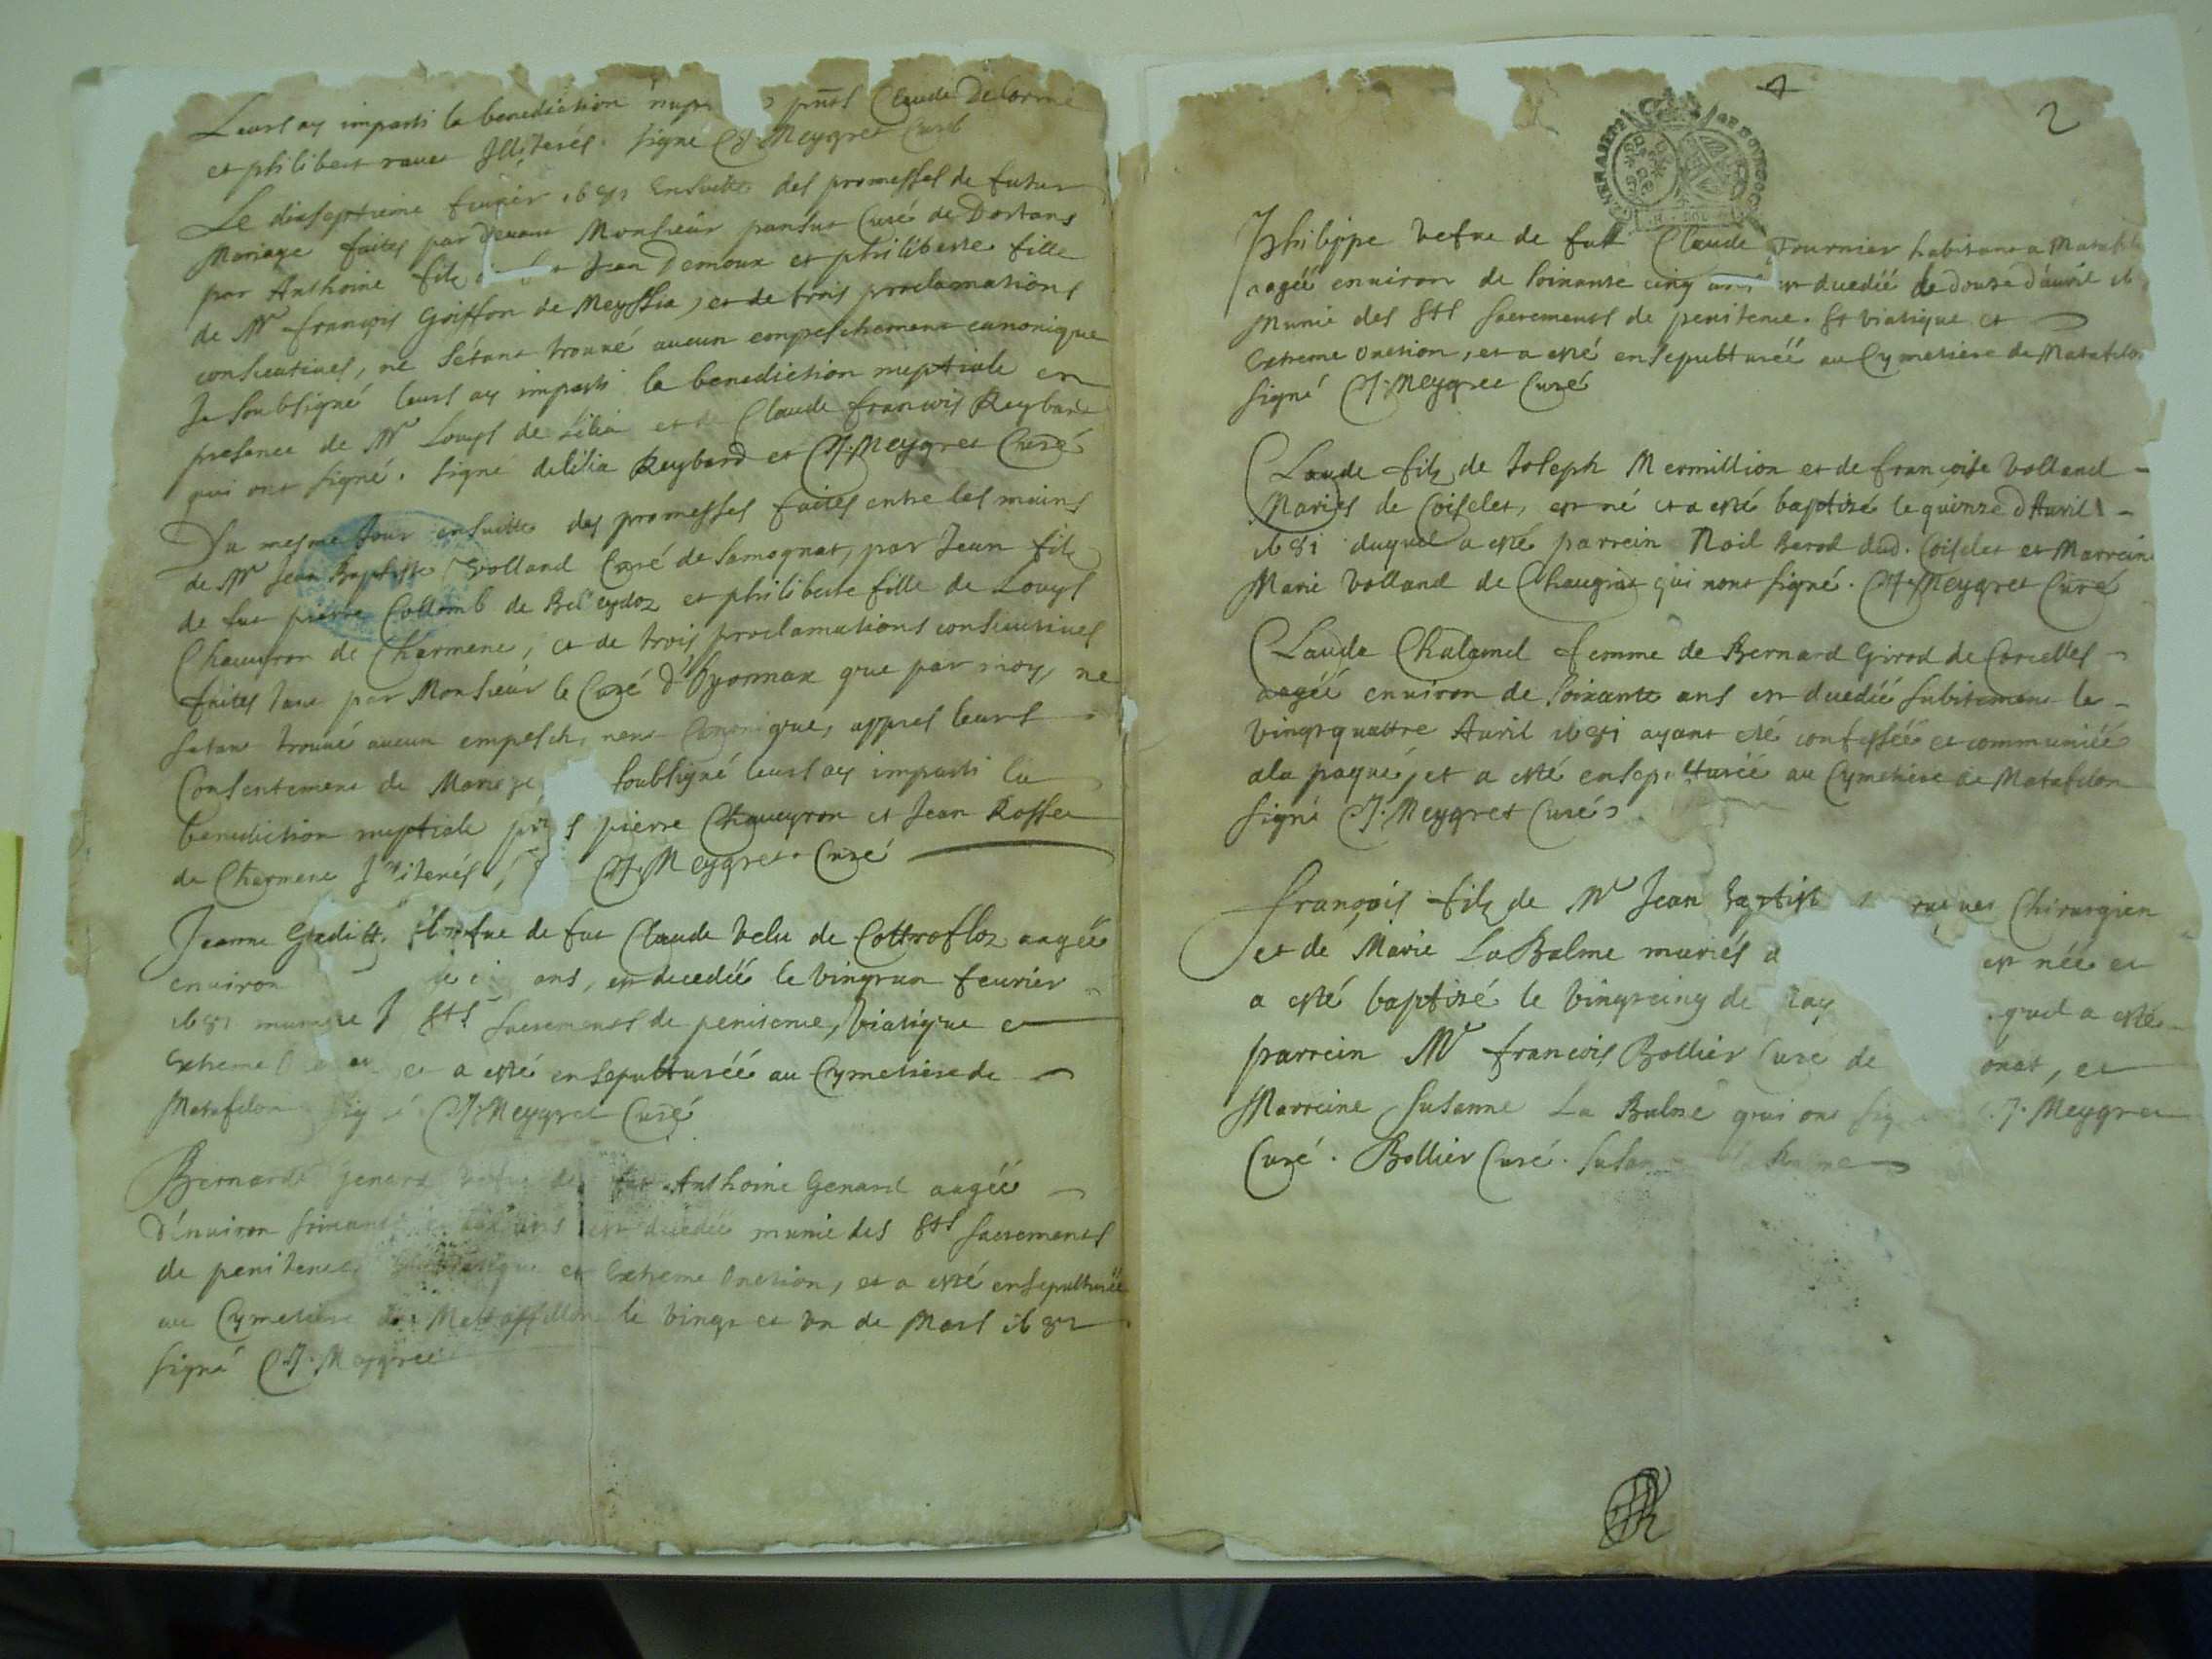 Leurs ay imparti la benediction nup pnts Claude Delorme
et philibert rauet Illiterés. signé CJ. Meygret Curé
Le dixseptieme feurier 1681 Ensuitte des promesses de futur
Mariage faites par deuant Monsieur pansut Curé de Dortans
par Anthoine filz Jean Demoux et philiberte fille
de Mr françois Goiffon de Meyssia, et de trois proclamations
consecutiues, ne s'étant trouué aucun empeschement canonique
Je soubsigné leurs ay imparti la benediction nuptiale en
presence de Mr Louys de Lilia et Claude françois Reybard
qui ont signé. signé delilia Reybard et CJ. Meygret Curé
Du mesme Jour ensuitte des promesses faites entre les mains
de Mr Jean Baptiste Volland Curé de Samognat, par Jean filz
de fut pierre Collomb de et philiberte fille de Louys
Chaueyron de Charmene, et de trois proclamations consecutiues
faites tant par Monsieur le Curé d'Oyonnax que par moy, ne
setant trouué aucun empesch ment Canonique, appres leurs
Consentement de Mariage soubsigné leurs ay imparti la
benediction nuptiale pierre Chaueyron et Jean Rosset
de Charmene CJ. Meygret Curé
Jeanne vefue de fut Claude Velu de Cottrofloz aagée
enuiron ans, est decedée le vingtun feurier
1681 munie Sts sacrements de penitence, viatique et
Extreme et a esté ensepulturéé au Cymetiere de
Matafelon CJ. Meygret Curé
Bernarde Genard vefue de fut Anthoine Genard aagéé
D'enuiron soixante ans est decedéé munie des Sts sacrements
de penitence viatique et Extreme Onction, et a esté ensepulturéé
au Cymetiere de Mattaffellon le vingt et vn de Mars 1681
signé CJ. Meygret
2
Philippe Vefue de fut Claude Fournier habitant a
aagéé enuiron de soixante cinq ans est decedéé le douze d'auril
Munie des Sts sacrements de penitence. St viatique et
Extreme Onction, et a esté ensepulturéé au Cymetiere de Matafelon
signé CJ. Meygret Curé
Claude filz de Joseph Mermillion et de françoise Volland
Mariés de Coiselet, est né et a esté baptizé le quinze d'Auril
1681 duquel a esté parrein Noil Berod dud. Coiselet et Marreine
Marie Volland de qui nont signé. CJ. Meygret Curé
Claude femme de Bernard Girod de Corcelles
aagéé enuiron de soixante ans est decedéé subitement le
vingtquattre Auril 1681 ayant été confesséé et communiéé
a la paque, et a esté ensepulturéé au Cymetiere de Matafelon
signé CJ. Meygret Curé
françois filz de Mr Jean Baptist Chirurgien
et de Marie La Balme mariés est néé et
a esté baptizé le vingtcinq de quel a esté
parrein Mr françois Bollier Curé de et
Marreine Susanne La Balme qui ont J. Meygret
Curé. Bollier Curé.